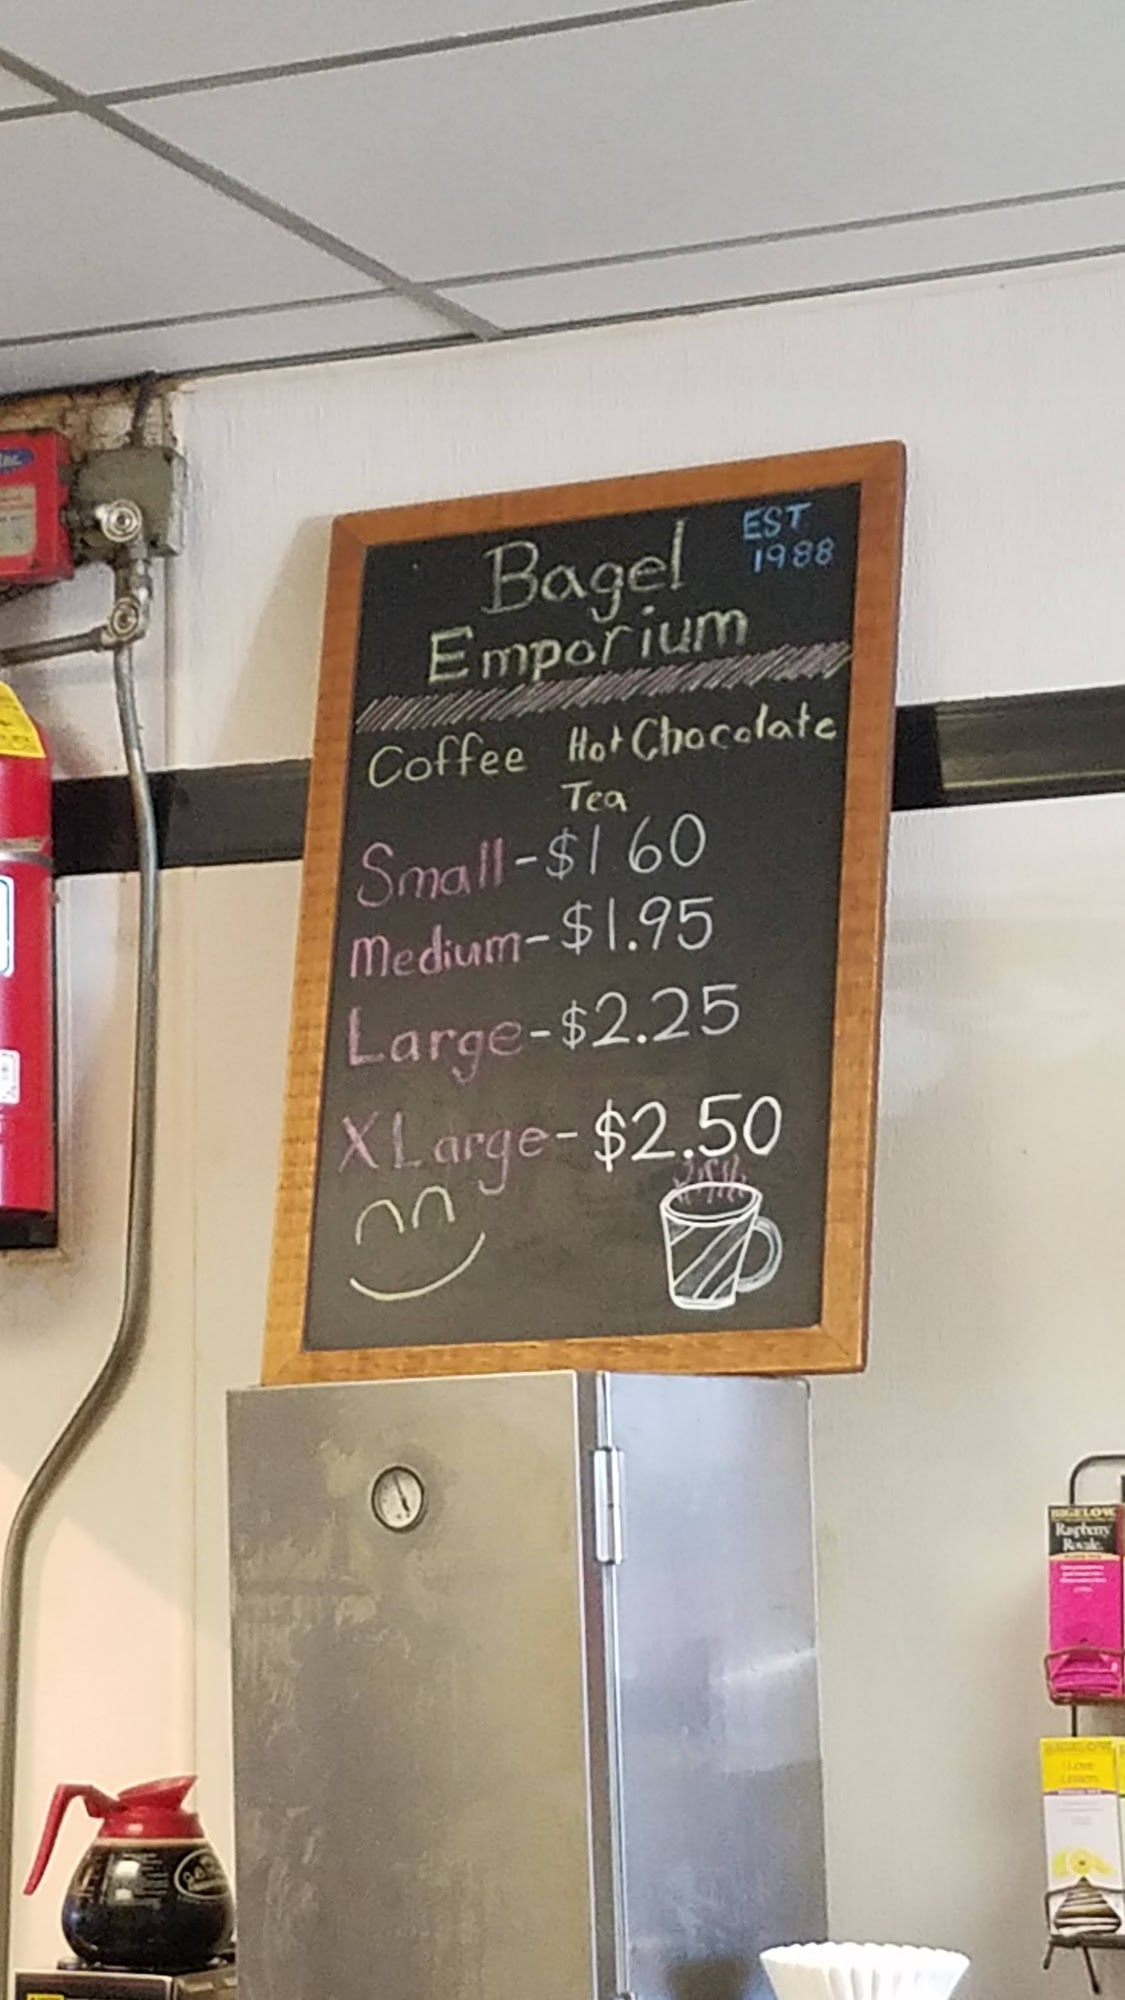 EST
1988
Bagel
Emporium
Coffee Hot Chocolate
Tea
Small-$1.60
Medium-$1.95
Large-$2.25
XLarge-$2.50
BIGELOW
Raspberry
Royale
I Love
Lemon